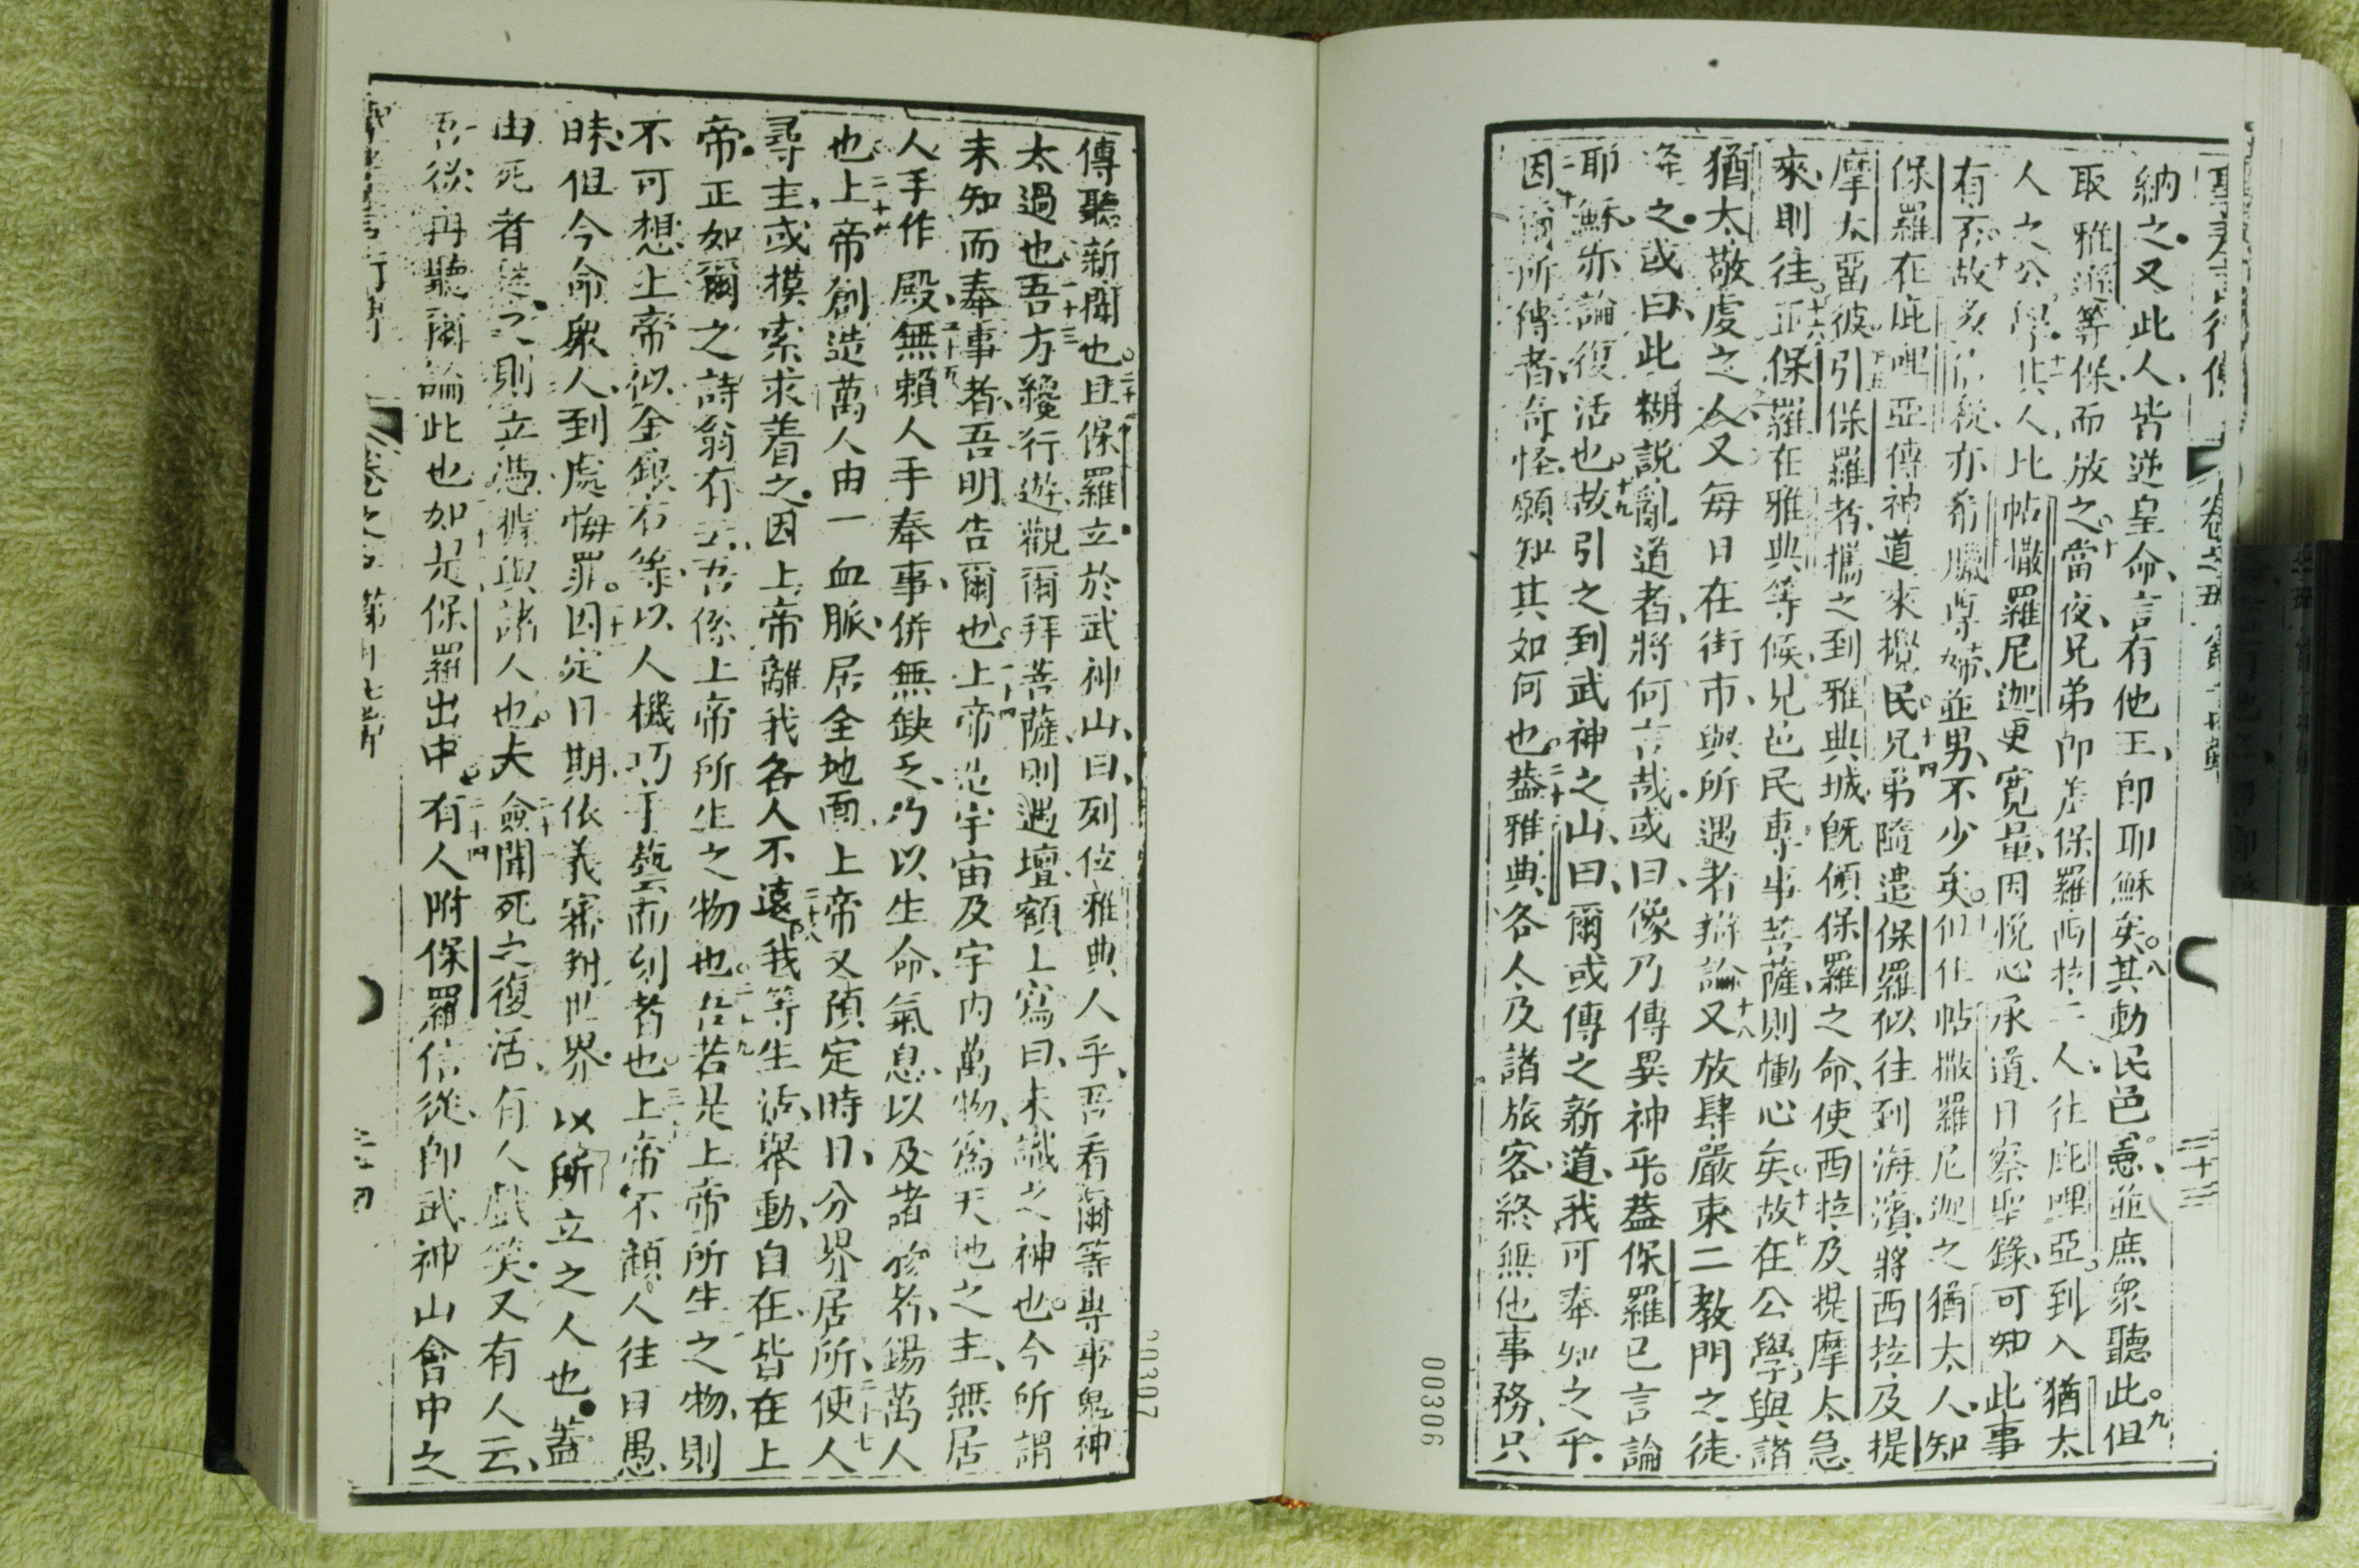 聖差言行傳 卷之五 第十七章 三十三
納之又此人皆逆皇命言有他王即耶穌矣八其動民邑憲並庶眾聽此九但
取雅遜等保而放之十當夜兄弟即差保羅西拉二人往庇哩亞到入猶太
人之公學十一其人比帖撒羅尼迦更寬量因悅心承道日察聖錄可知此事
有否十二故多信從亦希臘尊婦並男不少矣但住帖撒羅尼迦之猶太人知
保羅在庇哩亞傳神道來攪民十四兄弟隨遣保羅似往到海濱將西拉及提
摩太留彼十五引保羅者攜之到雅典城既傾保羅之命使西拉及提摩太急
來則往十六正保羅在雅典等候見邑民專事菩薩則慟心矣十七故在公學與諸
猶太敬虔之人又每日在街市與所遇者辯論十八又放肆嚴束二教門之徒
夆之或曰此糊說亂道者將何言哉或曰像乃傳異神乎蓋保羅已言論
耶穌亦論復活也十九故引之到武神之山曰爾或傳之新道我可奉知之乎
二十因爾所傳者奇怪願知其如何也二十一蓋雅典各人及諸旅客終無他事務只
00306
傳聽新聞也二十二且保羅立於武神山曰列位雅典人乎吾看爾等專事鬼神
太過也二十三吾方纔行遊觀爾拜菩薩則遇壇額上寫曰未識之神也今所謂
未知而奉事者吾明告爾也二十四上帝造宇宙及宇內萬物為天地之主無居
人手作殿二十五無賴人手奉事併無缺乏乃以生命氣息以及諸物者錫萬人
也二十六上帝創造萬人由一血脈居全地面上帝又預定時日分界居所使人二十七
尋主或摸索求着之因上帝離我各人不遠二十八我等生活舉動自在皆在上
帝正如爾之詩翁有云吾係上帝所生之物也二十九吾若是上帝所生之物則
不可想上帝似金銀石等以人機巧手藝而刻者也三十上帝不顧人往日愚
昧但今命眾人到處悔罪三十一因定日期依義審判世界以所立之人也蓋
由死者復之則立憑據與諸人也三十二夫僉聞死之復活有人戲笑又有人云
吾欲再聽爾論此也如是保羅出中三十四有人附保羅信從即武神山會中之
聖差言行傳 卷之五 第十七章 三十四
00307